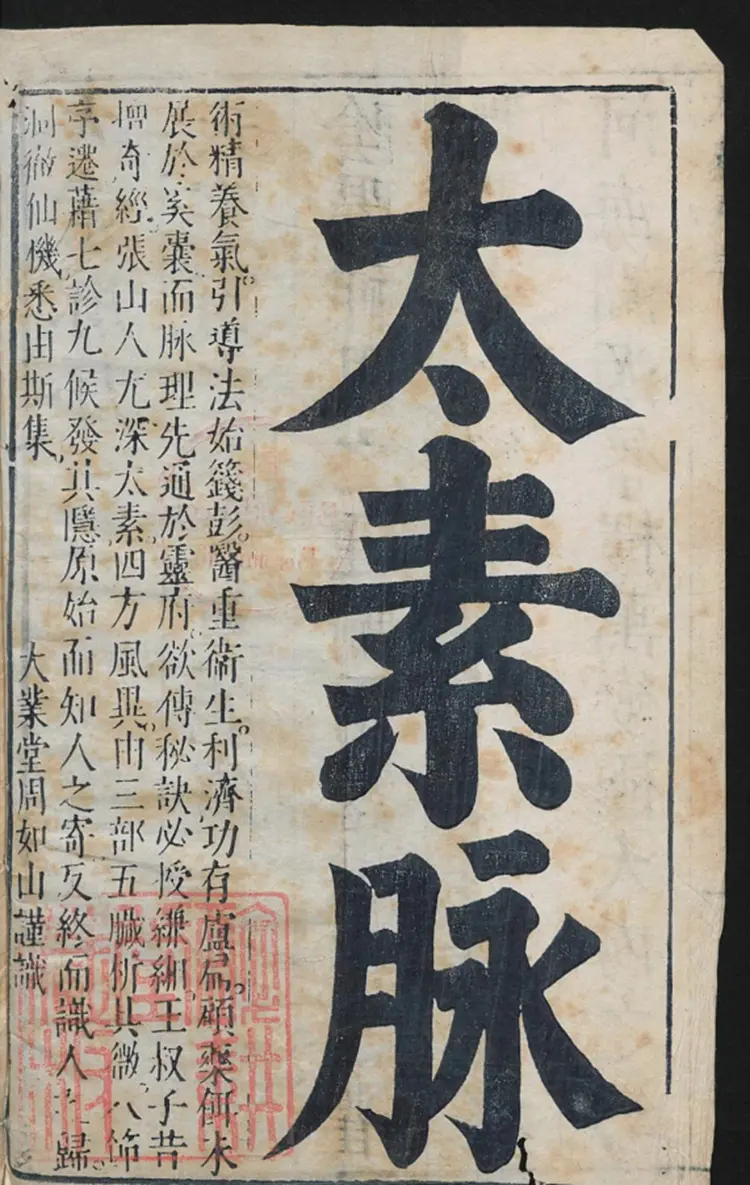 太素脉
術精養氣。引導法始籛彭。醫重衛生。利濟功有盧扁。顧藥餌未
展於奚囊而脉理先通於靈府。欲傳秘訣必授縑緗。王叔子昔
增奇經。張山人尤深太素。四方風異。由三部五臟析其微。八節
亭遷藉七診九候發其隱。原始而知人之寄。反終而識人之歸。
洞徹仙機。悉由斯集。
大業堂周如山謹識